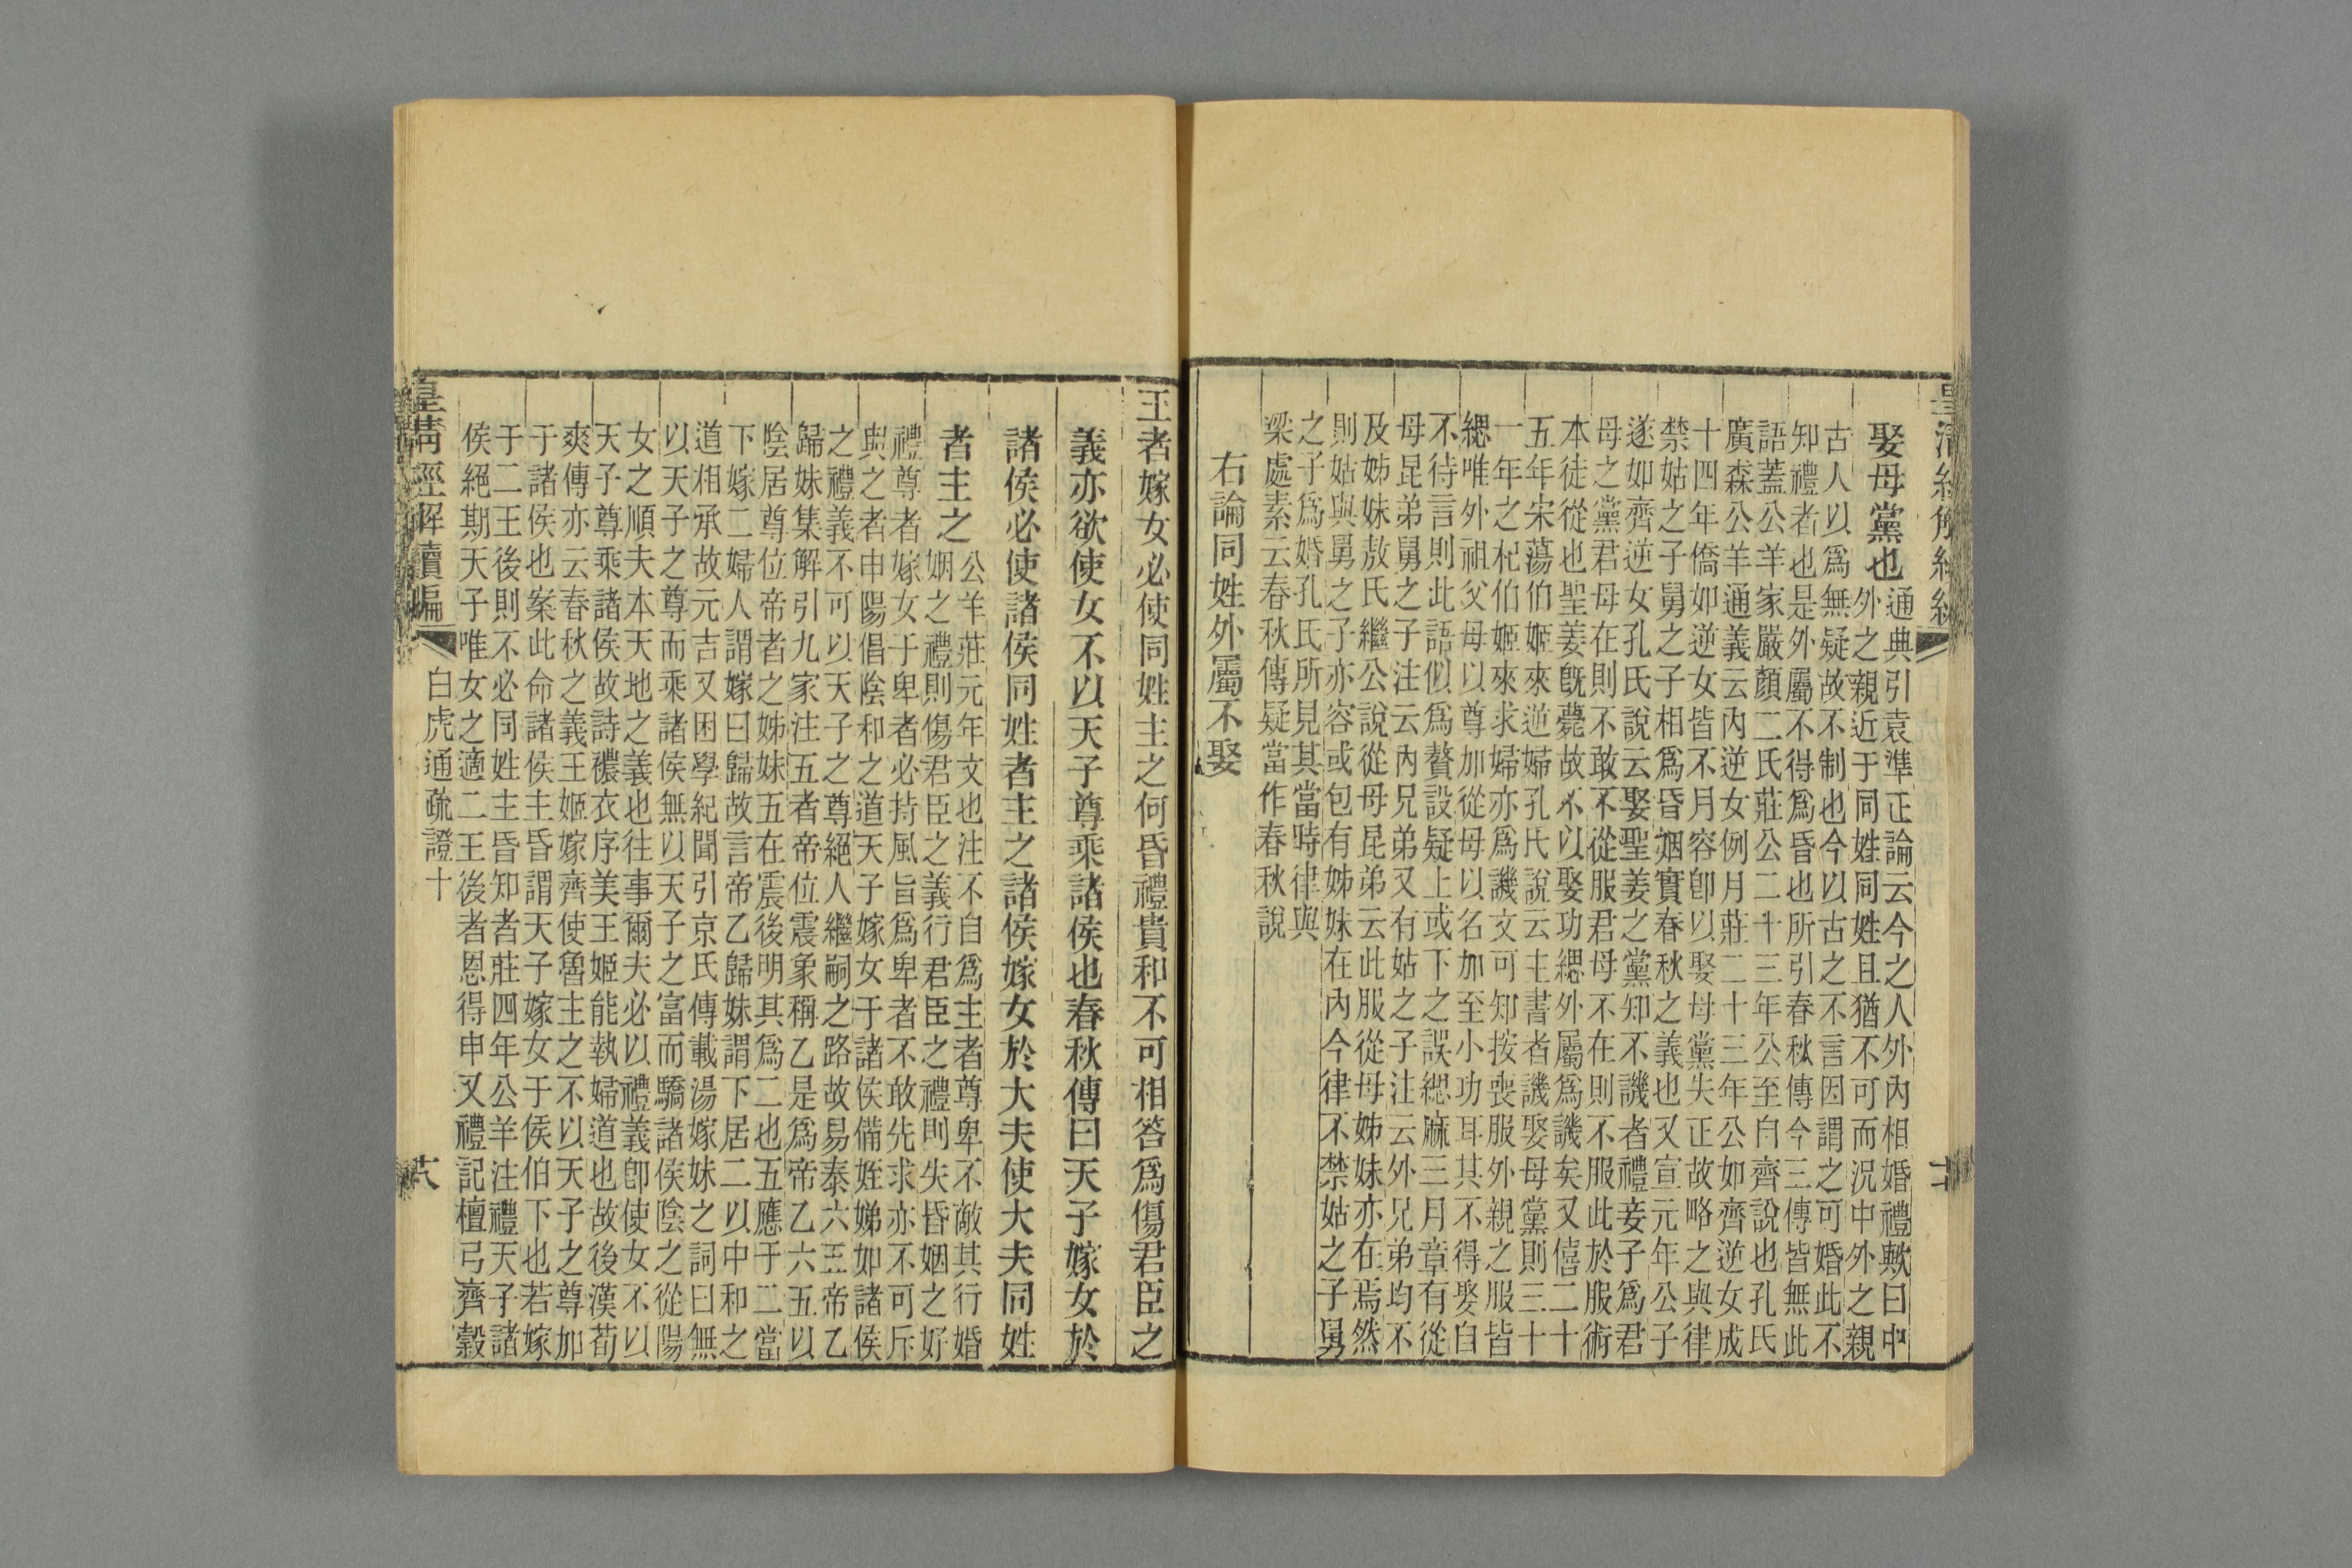 娶母黨也
通典引袁準正論云今之人外內相婚禮歟曰中
外之親近于同姓同姓且猶不可而況中外之親
古人以爲無疑故不制也今以古之不言因謂之可婚此不
知禮者也是外屬不得爲昏也所引春秋傳今三傳皆無此
語蓋公羊家嚴顏二氏莊公二十三年公至自齊說也孔氏
廣森公羊通義云內逆女例月莊二十三年公如齊逆女成
十四年僑如逆女皆不月容卽以娶母黨失正故略之與律
禁姑之子舅之子相爲昏姻實春秋之義也又宣元年公子
遂如齊逆女孔氏說云娶聖姜之黨知不譏者禮妾子爲君
母之黨君母在則不敢不從服君母不在則不服此於服術
本徒從也聖姜旣薨故不以娶功緦外屬爲譏矣又僖二十
五年宋蕩伯姬來逆婦孔氏說云主書者譏娶母黨則三十
一年之杞伯姬來求婦亦爲譏文可知按喪服外親之服皆
緦唯外祖父母以尊加從母以名加至小功耳其不得娶自
不待言則此語似爲贅設疑上或下之誤緦麻三月章有從
母昆弟舅之子注云內兄弟又有姑之子注云外兄弟均不
及姊妹敖氏繼公說從母昆弟云此服從母姊妹亦在焉然
則姑與舅之子亦容或包有姊妹在內今律不禁姑之子舅
之子爲婚孔氏所見其當時律與
梁處素云春秋傳疑當作春秋說
右論同姓外屬不娶
王者嫁女必使同姓主之何昏禮貴和不可相答爲傷君臣之
義亦欲使女不以天子尊乘諸侯也春秋傳曰天子嫁女於
諸侯必使諸侯同姓者主之諸侯嫁女於大夫使大夫同姓
者主之
公羊莊元年文也注不自爲主者尊卑不敵其行婚
姻之禮則傷君臣之義行君臣之禮則失昏姻之好
禮尊者嫁女于卑者必持風旨爲卑者不敢先求亦不可斥
與之者申陽倡陰和之道天子嫁女于諸侯備姪娣如諸侯
之禮義不可以天子之尊絕人繼嗣之路故易泰六五帝乙
歸妹集解引九家注五者帝位震象稱乙是爲帝乙六五以
陰居尊位帝者之姊妹五在震後明其爲二也五應于二當
下嫁二婦人謂嫁曰歸故言帝乙歸妹謂下居二以中和之
道相承故元吉又困學紀聞引京氏傳載湯嫁妹之詞曰無
以天子之尊而乘諸侯無以天子之富而驕諸侯陰之從陽
女之順夫本天地之義也往事爾夫必以禮義卽使女不以
天子尊乘諸侯故詩穠衣序美王姬能執婦道也故後漢荀
爽傳亦云春秋之義王姬嫁齊使魯主之不以天子之尊加
于諸侯也案此命諸侯主昏謂天子嫁女于侯伯下也若嫁
于二王後則不必同姓主昏知者莊四年公羊注禮天子諸
侯絕期天子唯女之適二王後者恩得申又禮記檀弓齊穀
皇清經解續編
白虎通疏證十